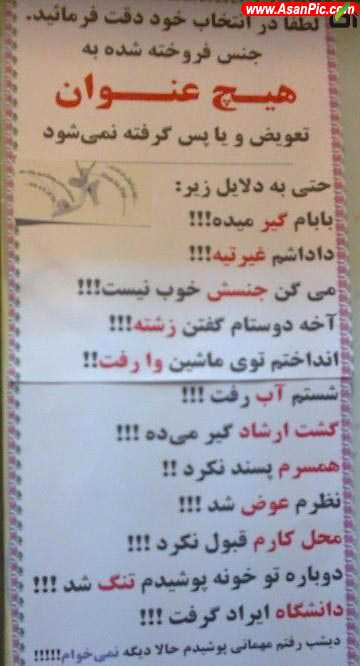 www.AsanPic.com
لطفا در انتخاب خود دقت فرمائید.
جنس فروخته شده به
هیــچ عنــوان
تعویض و یا پس گرفته نمی‌شود
حتی به دلایل زیر:
بابام گیر میده!!!
داداشم غیرتیه!!!
می گن جنسش خوب نیست!!!
آخه دوستام گفتن زشته!!!
انداختم توی ماشین وا رفت!!
شستم آب رفت !!!
گشت ارشاد گیر می‌ده !!!
همسرم پسند نکرد !!
نظرم عوض شد !!!
محل کارم قبول نکرد !!!
دوباره تو خونه پوشیدم تنگ شد !!!
دانشگاه ایراد گرفت !!!
دیشب رفتم مهمانی پوشیدم حالا دیگه نمی‌خوام!!!!!